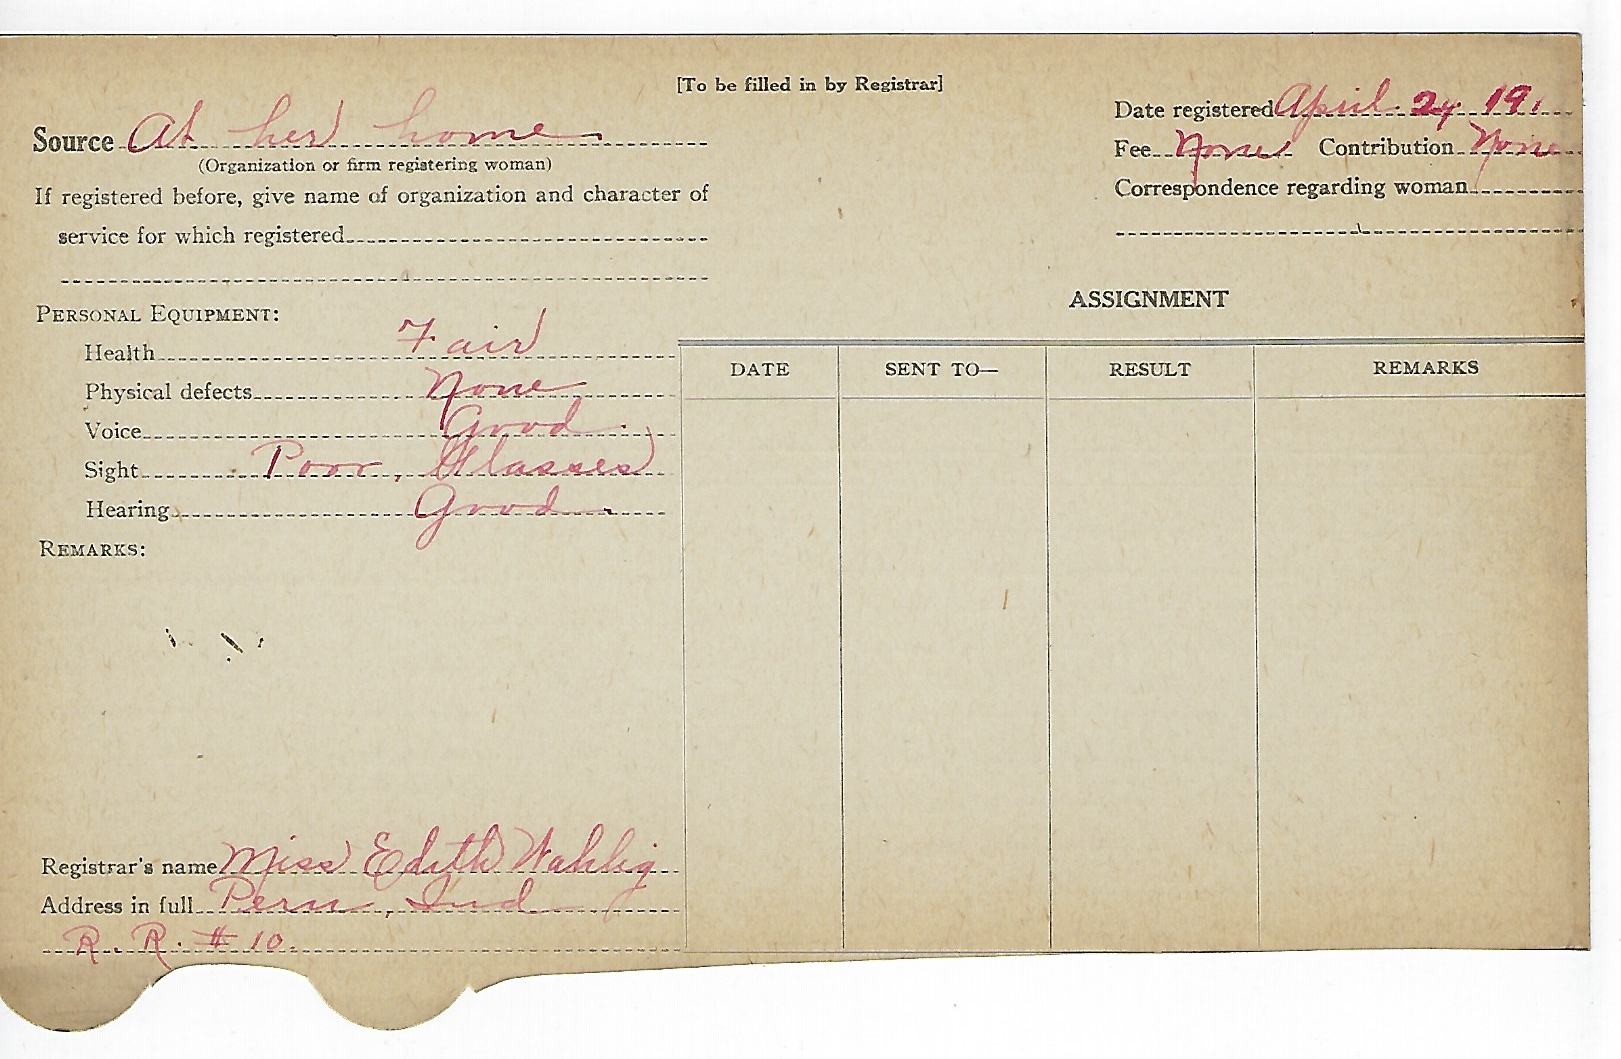 [To be filled in by Registrar]
Source At her home
(Organization or firm registering woman)
If registered before, give name of organization and character of
service for which registered
Date registered April 24 191
Fee None Contribution None
Correspondence regarding woman
PERSONAL EQUIPMENT:
Health Fair
Physical defects None
Voice Good
Sight Poor, Glasses
Hearing Good
REMARKS:
ASSIGNMENT
DATE SENT TO— RESULT REMARKS
Registrar's name Miss Edith Wahlig
Address in full Peru, Ind
R. R. # 10.